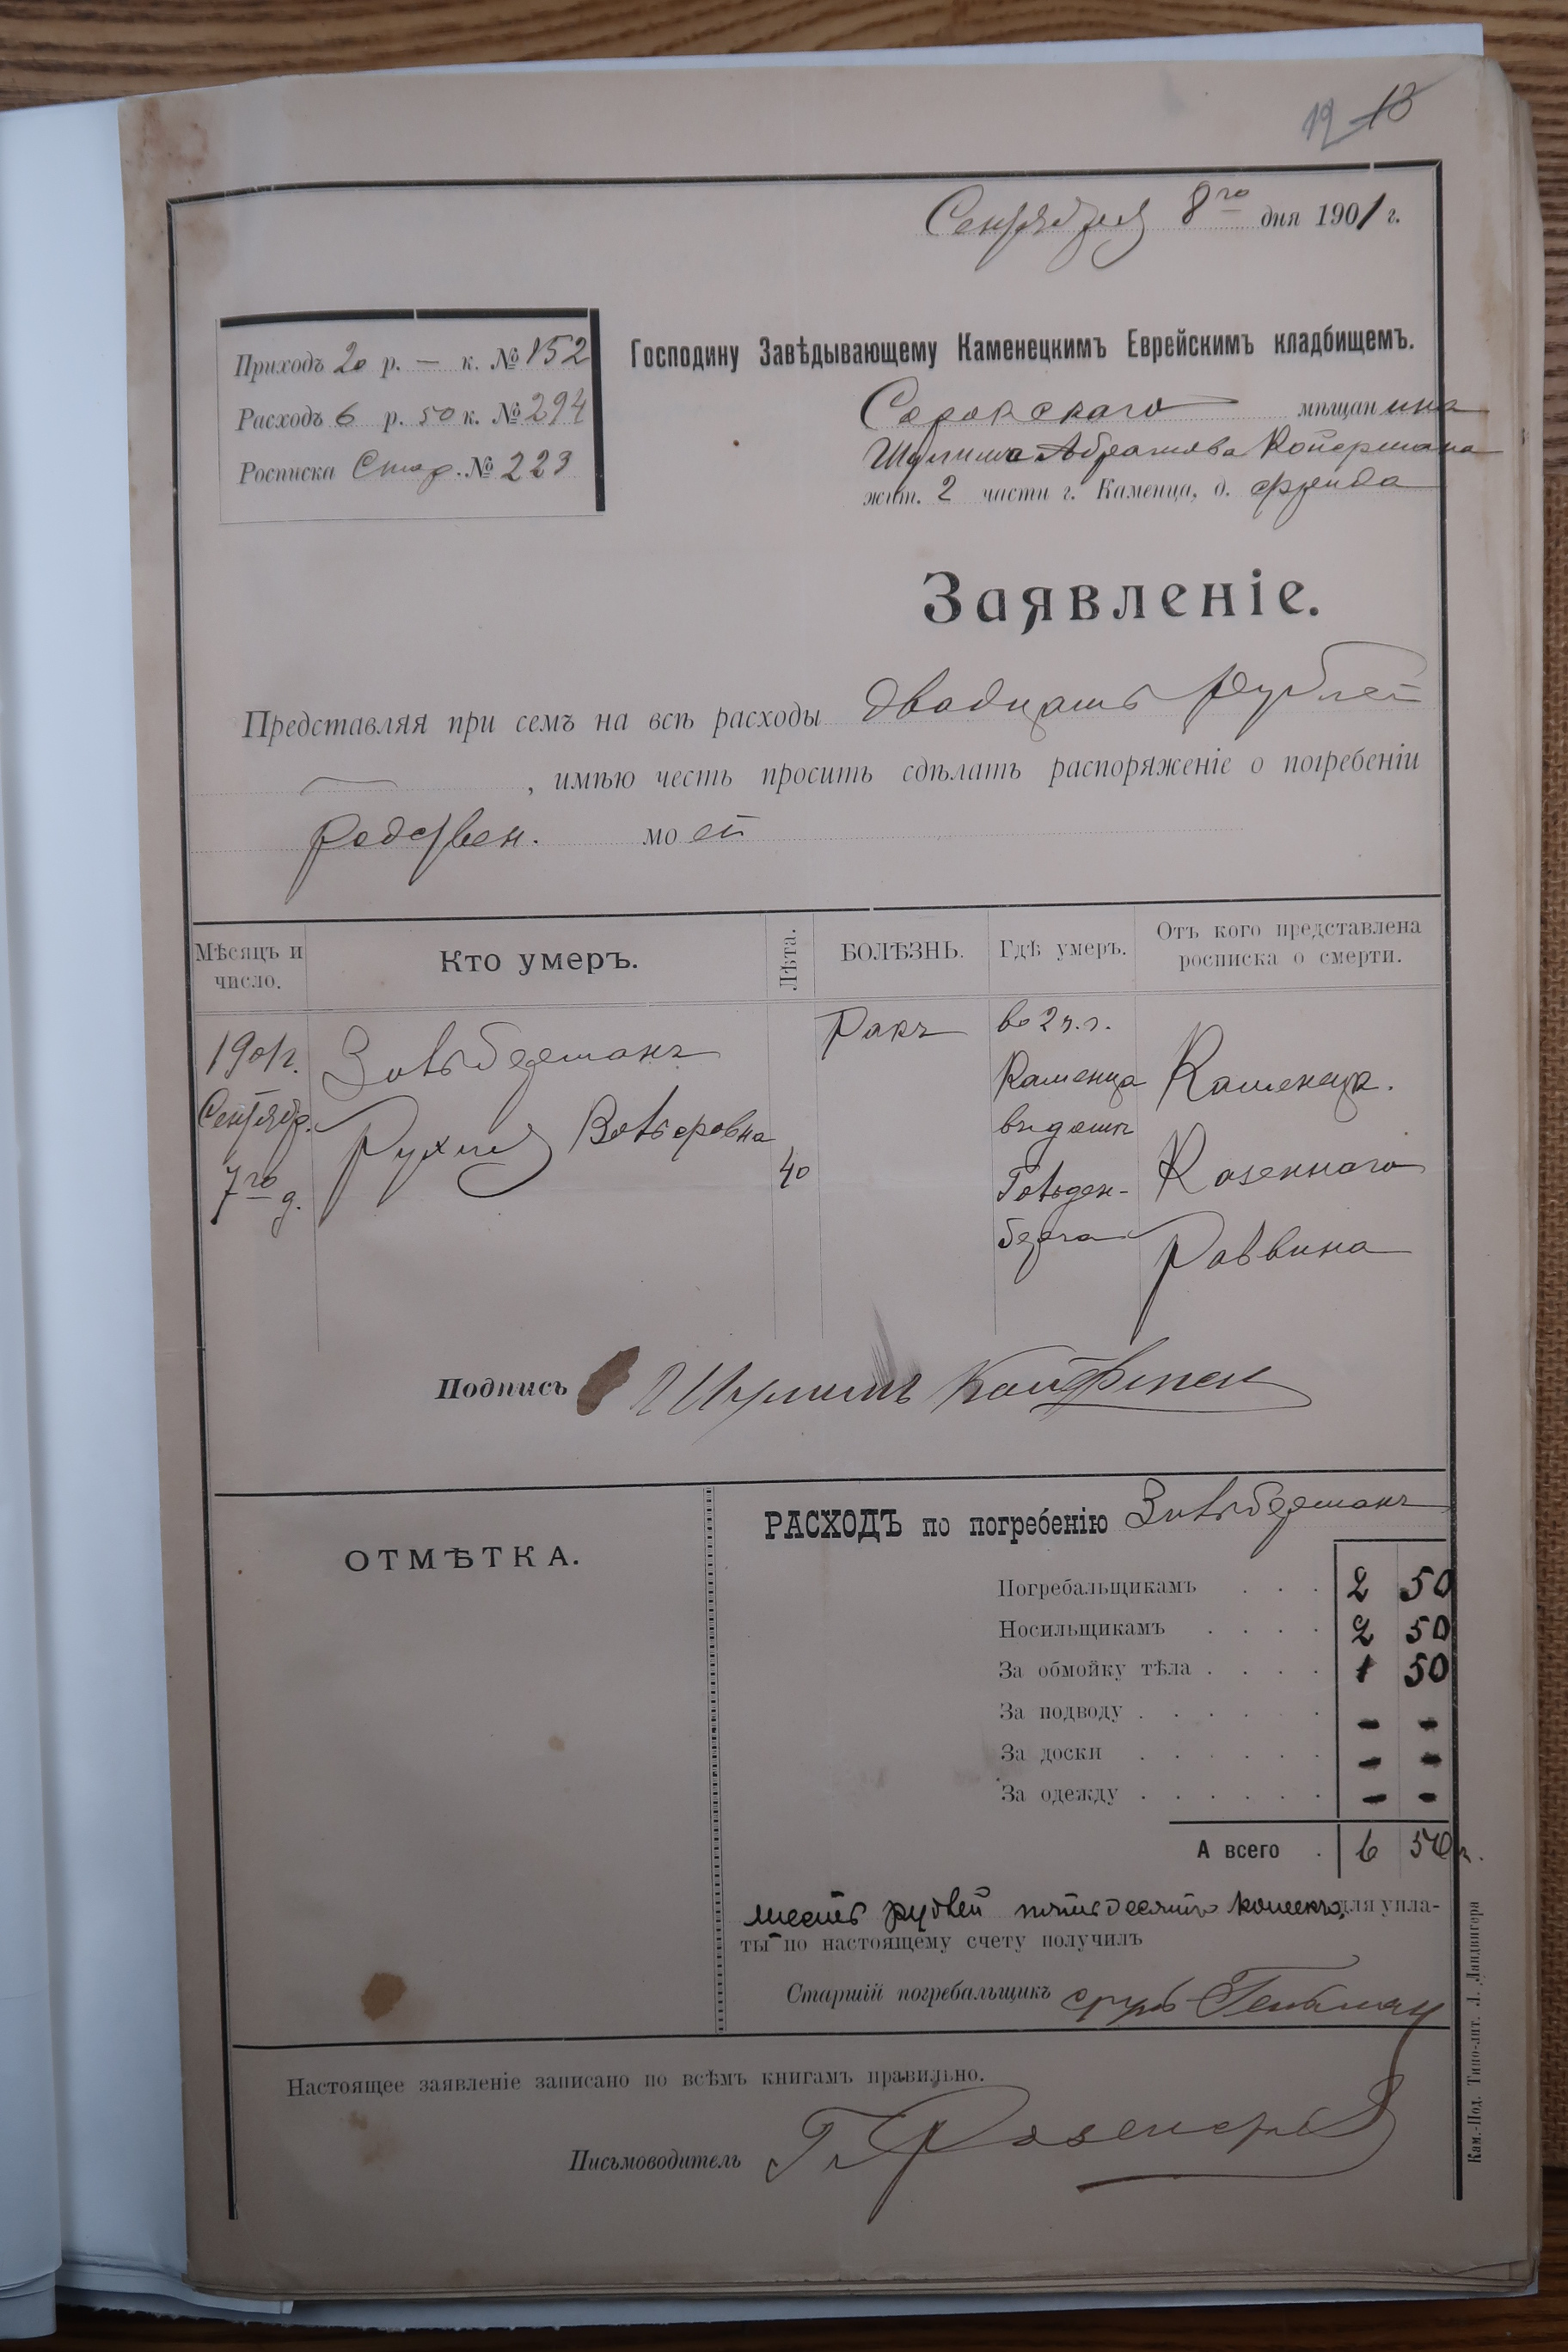 12 13
Сентября 8го дня 1901 г.
Приходъ 20 р. — к. № 152
Расходъ 6 р. 50 к. № 294
Росписка Стар. № 223
Господину Завѣдывающему Каменецкимъ Еврейскимъ кладбищемъ.
Сорокскаго мѣщанина
Шулима Абрамова Койфмана
жит. 2 части г. Каменца, д.
Заявленіе.
Представляя при семъ на всѣ расходы двадцать рублей
, имѣю честь просить сдѣлать распоряженіе о погребеніи
родствен. моей
Мѣсяцъ и число.
Кто умеръ.
Лѣта.
БОЛѢЗНЬ.
Гдѣ умеръ.
Отъ кого представлена росписка о смерти.
1901 г.
Сентябр.
7го д.
Зильберманъ
Рухля Вольфовна
40
Ракъ
во 2 ч. г.
Каменца
въ домѣ
Гольден-
берга
Каменецк.
Казеннаго
Раввина
Подпись Шулимъ
ОТМѢТКА.
РАСХОДЪ по погребенію Зильберманъ
Погребальщикамъ . . . 2 50
Носильщикамъ . . . . 2 50
За обмойку тѣла . . . . 1 50
За подводу . . . . . . - -
За доски . . . . . . - -
За одежду . . . . . . - -
А всего . 6 50 к.
шесть рублей пятьдесятъ копѣекъ, для упла-
ты по настоящему счету получилъ
Старшій погребальщикъ
Настоящее заявленіе записано по всѣмъ книгамъ правильно.
Письмоводитель
Кам.-Под. Типо-лит. Л. Ландвигера